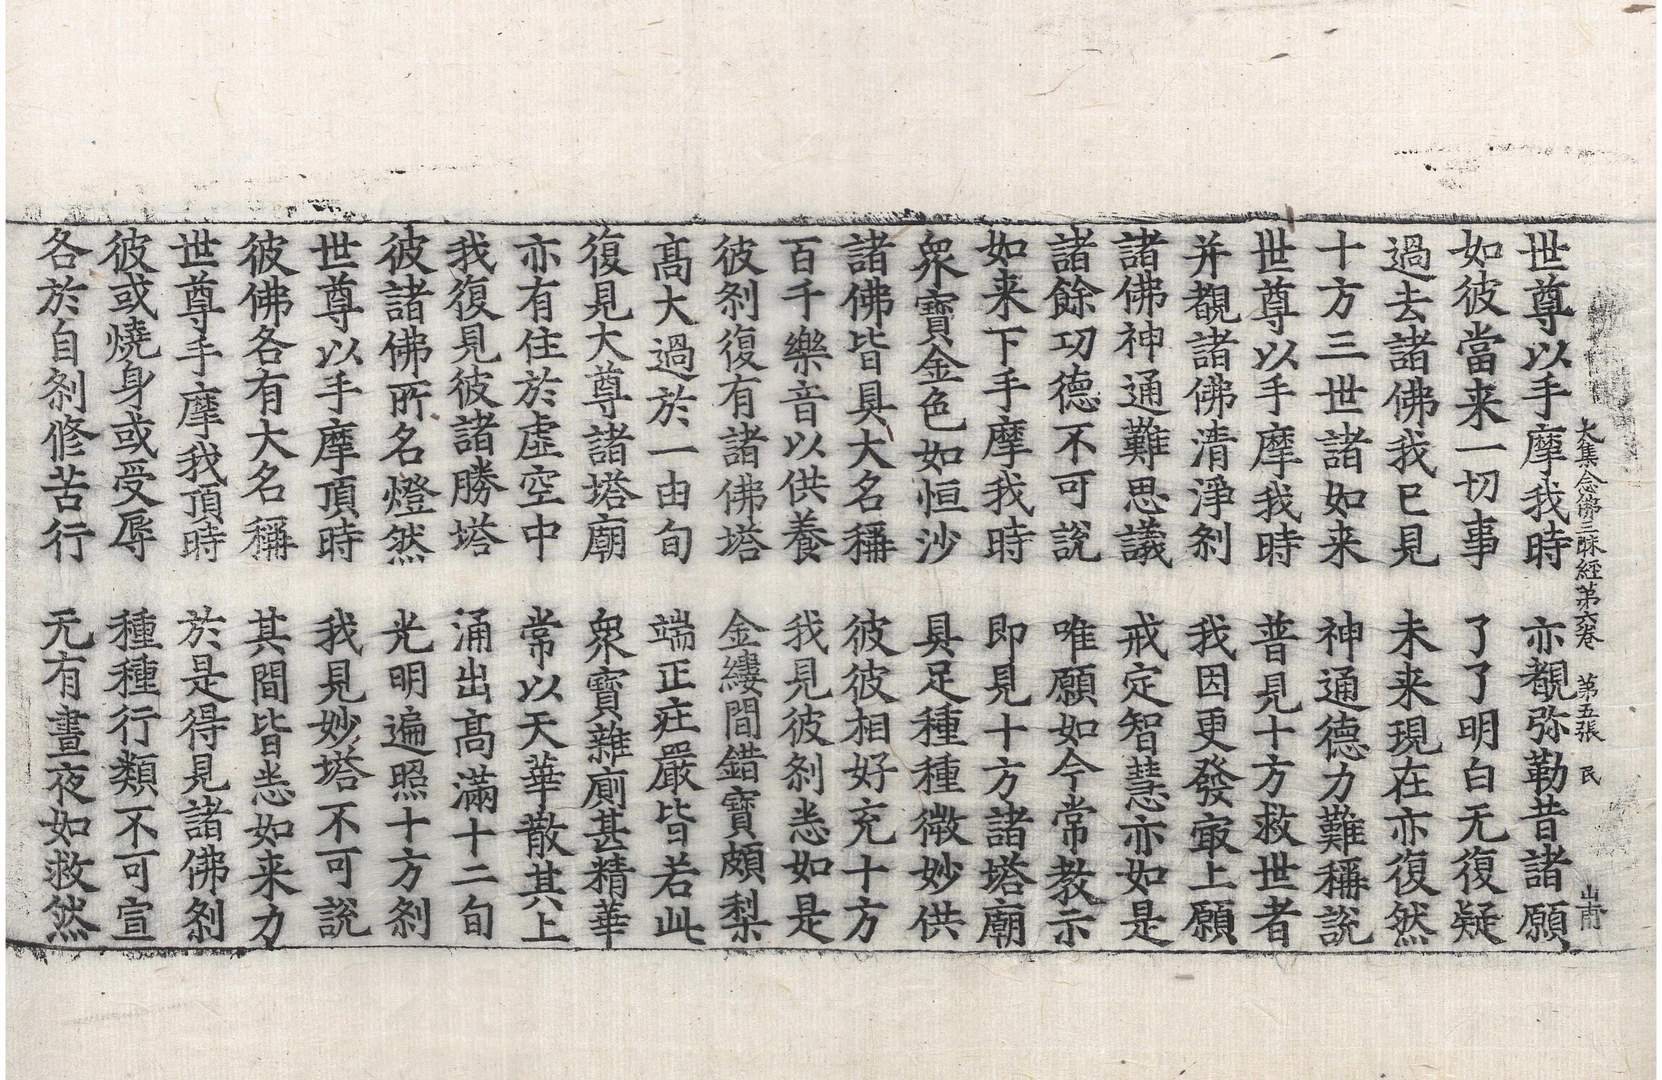 大集念佛三昧經第六卷　第五張　民
山甫
世尊以手摩我時　亦覩弥勒昔諸願
如彼當来一切事　了了明白无復疑
過去諸佛我已見　未来現在亦復然
十方三世諸如来　神通德力難稱說
世尊以手摩我時　普見十方救世者
并覩諸佛清淨刹　我因更發㝡上願
諸佛神通難思議　戒定智慧亦如是
諸餘功德不可說　唯願如今常教示
如来下手摩我時　即見十方諸塔廟
衆寶金色如恒沙　具足種種微妙供
諸佛皆具大名稱　彼彼相好充十方
百千樂音以供養　我見彼刹悉如是
彼刹復有諸佛塔　金縷間錯寶頗梨
髙大過於一由旬　端正莊嚴皆若此
復見大尊諸塔廟　衆寶雜廁甚精華
亦有住於虛空中　常以天華散其上
我復見彼諸勝塔　涌出髙滿十二旬
彼諸佛所名燈然　光明遍照十方刹
世尊以手摩頂時　我見妙塔不可說
彼佛各有大名稱　其間皆悉如来力
世尊手摩我頂時　於是得見諸佛刹
彼或燒身或受辱　種種行類不可宣
各於自刹修苦行　无有晝夜如救然